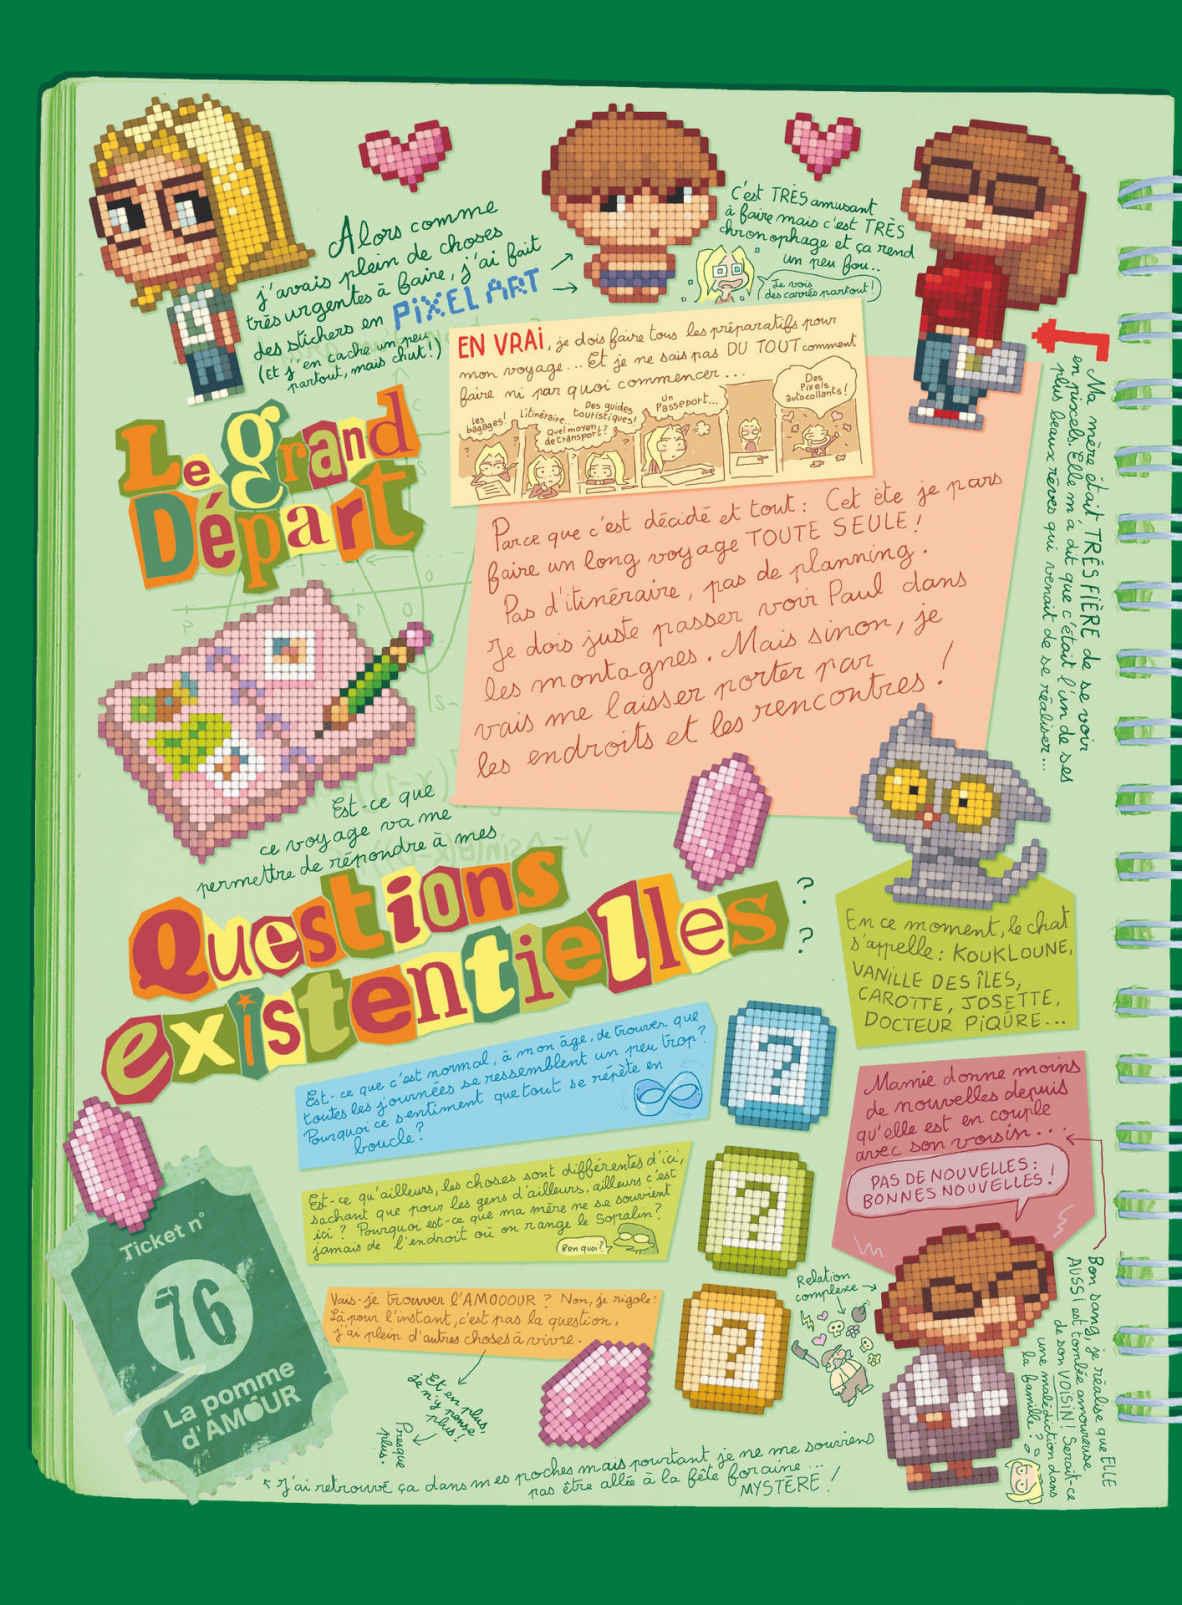 Alors comme
j'avais plein de choses
très urgentes à faire, j'ai fait
des stickers en PiXEL ART
(Et j'en cache un peu
partout, mais chut!)
C'est TRÈS amusant
à faire mais c'est TRÈS
chronophage et ça rend
un peu fou..
Je vois
des carrés partout!
Ma mère était TRÈS FIÈRE de se voir
en pixels. Elle m'a dit que c'était l'un de ses
plus beaux rêves qui venait de se réaliser...
EN VRAi, je dois faire tous les préparatifs pour
mon voyage... Et je ne sais pas DU TOUT comment
faire ni par quoi commencer...
Les
bagages!
L'itinéraire
Quel moyen
de transport?
Des guides
touristiques!
Un
Passeport...
Des
Pixels
autocollants!
Le grand
Départ
Parce que c'est décidé et tout: Cet été je pars
faire un long voyage TOUTE SEULE!
Pas d'itinéraire, pas de planning.
Je dois juste passer voir Paul dans
les montagnes. Mais sinon, je
vais me laisser porter par
les endroits et les rencontres!
Est-ce que
ce voyage va me
permettre de répondre à mes
Questions
existentielles
?
?
En ce moment, le chat
s'appelle: KOUKLOUNE,
VANILLE DES ÎLES,
CAROTTE, JOSETTE,
DOCTEUR PiQÛRE...
Est-ce que c'est normal, à mon âge, de trouver que
toutes les journées se ressemblent un peu trop?
Pourquoi ce sentiment que tout se répète en
boucle?
?
Mamie donne moins
de nouvelles depuis
qu'elle est en couple
avec son voisin...
PAS DE NOUVELLES:
BONNES NOUVELLES!
Est-ce qu'ailleurs, les choses sont différentes d'ici,
sachant que pour les gens d'ailleurs, ailleurs c'est
ici? Pourquoi est-ce que ma mère ne se souvient
jamais de l'endroit où on range le Sopalin?
Ben quoi?
?
Ticket n°
76
La pomme
d'AMOUR
Vais-je trouver l'AMOOOUR? Non, je rigole:
Là pour l'instant, c'est pas la question,
j'ai plein d'autres choses à vivre.
?
Relation
complexe
Et en plus,
Je n'y pense
plus!
Presque
plus.
Bon sang, je réalise que ELLE
AUSSI est tombée amoureuse
de son VOISIN! Serait-ce
une malédiction dans
la famille?
J'ai retrouvé ça dans mes poches mais pourtant je ne me souviens
pas être allée à la fête foraine...
MYSTÈRE!